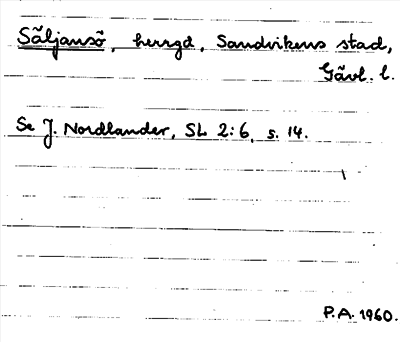 Säljansö, herrgd, Sandvikens stad,
Gävl. l.
Se J. Nordlander, SL 2:6, s. 14.
P.A. 1960.